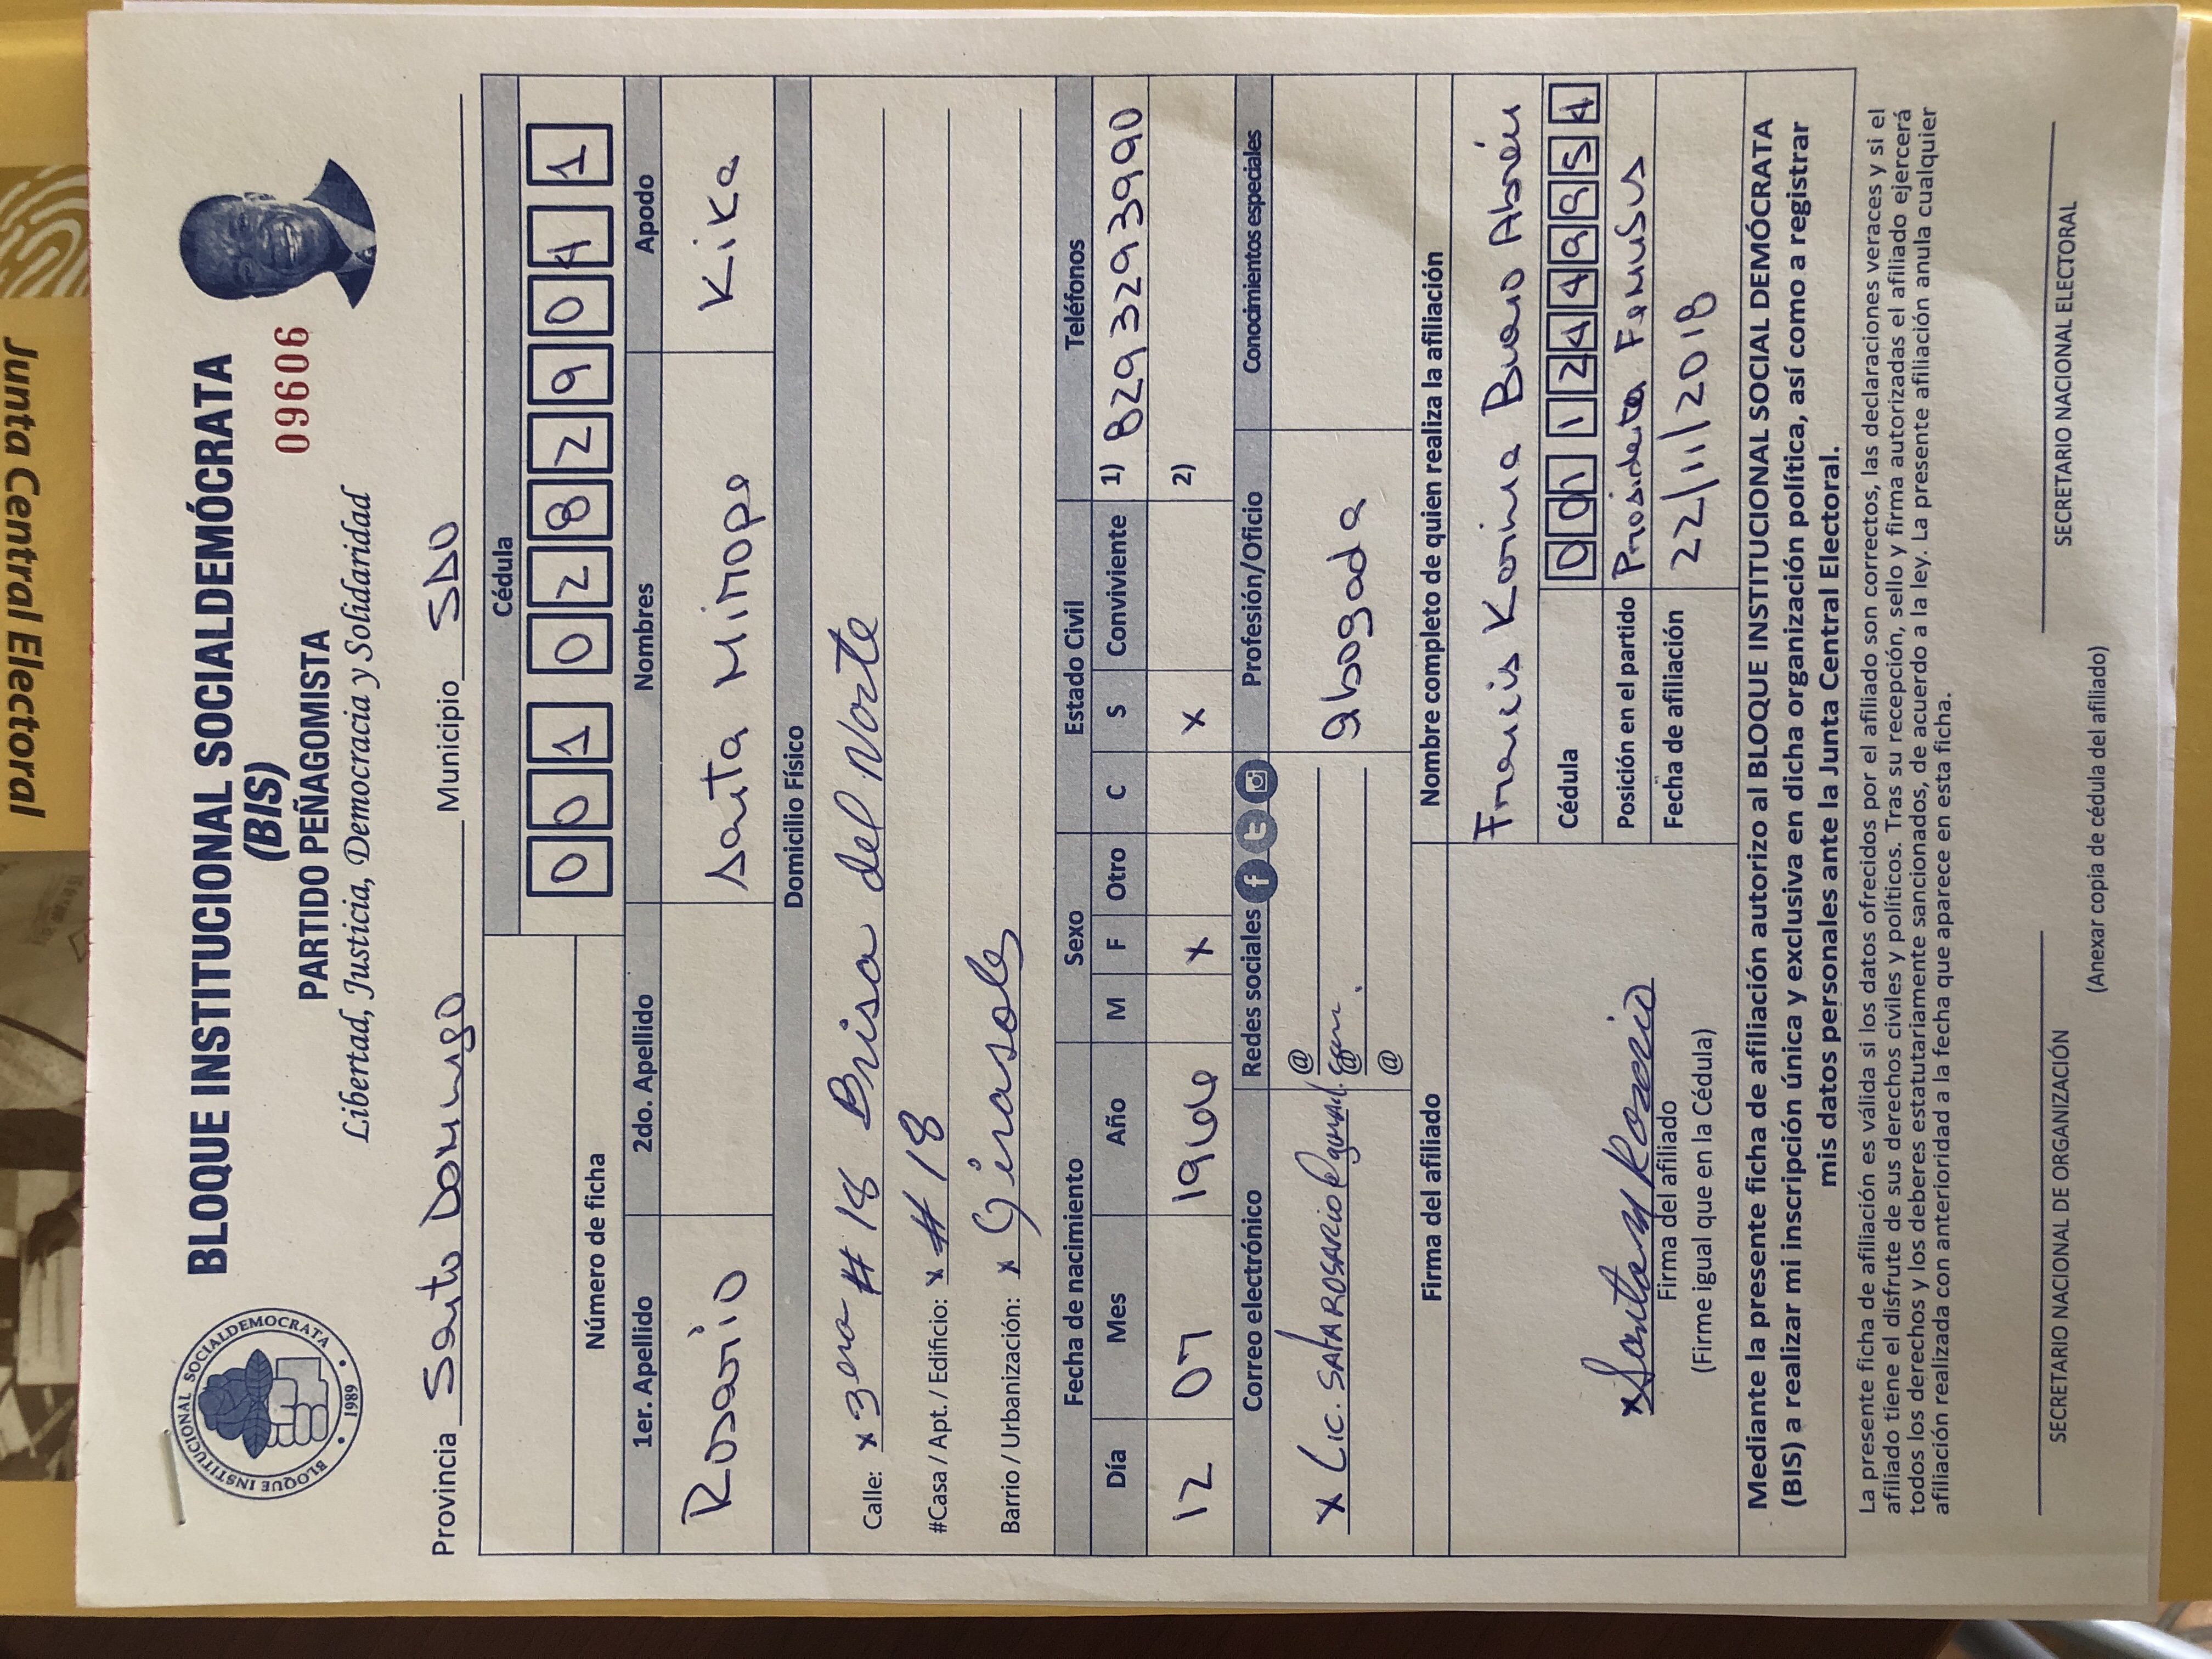 Junta Central Electoral
BLOQUE INSTITUCIONAL SOCIALDEMÓCRATA
(BIS)
09606
PARTIDO PEÑAGOMISTA
Libertad, Justicia, Democracia y Solidaridad
BLOQUE INSTITUCIONAL SOCIALDEMOCRATA
1989
Provincia Santo Domingo Municipio SDO
Cédula
Número de ficha 001 0282904 1
1er. Apellido 2do. Apellido Nombres Apodo
Rosario Santa Mirope Kika
Domicilio Físico
Calle: x 3era # 18 Brisa del Norte
#Casa / Apt. / Edificio: x # 18
Barrio / Urbanización: x Girasoles
Fecha de nacimiento Sexo Estado Civil Teléfonos
Día Mes Año M F Otro C S Conviviente 1) 8293293990
12 07 1966 x x 2)
Correo electrónico Redes sociales Profesión/Oficio Conocimientos especiales
@
x Lic. SANTAROSARIO @ Abogada
@
Firma del afiliado Nombre completo de quien realiza la afiliación
Francis Korina Bueno Abréu
Cédula 001 1244995 4
x Santa M Rosario Posición en el partido Presidenta
Firma del afiliado Fecha de afiliación 22/11/2018
(Firme igual que en la Cédula)
Mediante la presente ficha de afiliación autorizo al BLOQUE INSTITUCIONAL SOCIAL DEMÓCRATA
(BIS) a realizar mi inscripción única y exclusiva en dicha organización política, así como a registrar
mis datos personales ante la Junta Central Electoral.
La presente ficha de afiliación es válida si los datos ofrecidos por el afiliado son correctos, las declaraciones veraces y si el
afiliado tiene el disfrute de sus derechos civiles y políticos. Tras su recepción, sello y firma autorizadas el afiliado ejercerá
todos los derechos y los deberes estatutariamente sancionados, de acuerdo a la ley. La presente afiliación anula cualquier
afiliación realizada con anterioridad a la fecha que aparece en esta ficha.
SECRETARIO NACIONAL DE ORGANIZACIÓN SECRETARIO NACIONAL ELECTORAL
(Anexar copia de cédula del afiliado)